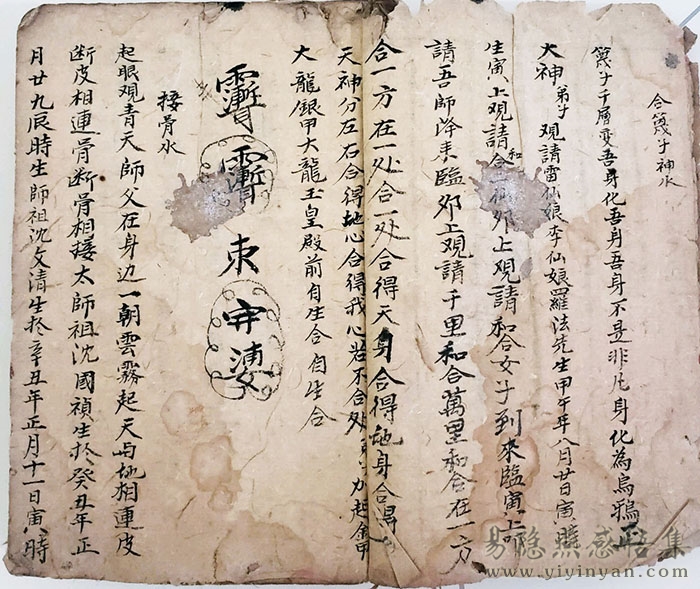 合篾子神水
篾子千層變吾身化吾身吾身不是非凡身化為烏鴉正
大神弟子 覌請雷仙娘李仙娘羅法先生甲午年八月廿日寅時
生寅上覌請和合二仙卯上覌請和合女子到來臨寅上卯
請吾師降來臨卯上覌請千里和合萬里和合在一方
合一方在一处合一处合得天身合得地身合得
天神分左右合得地心合得我心若不合处 力起金甲
大龍銀甲大龍玉皇殿前自生合自生合
接骨水
起眼观青天師父在身边一朝雲霧起天与地相連皮
断皮相連骨断骨相接太師祖沈國禎生於癸丑年正
月廿九辰時生師祖沈文清生於辛丑年正月十一日寅時
易隐燃感悟集
www.yiyinyan.com